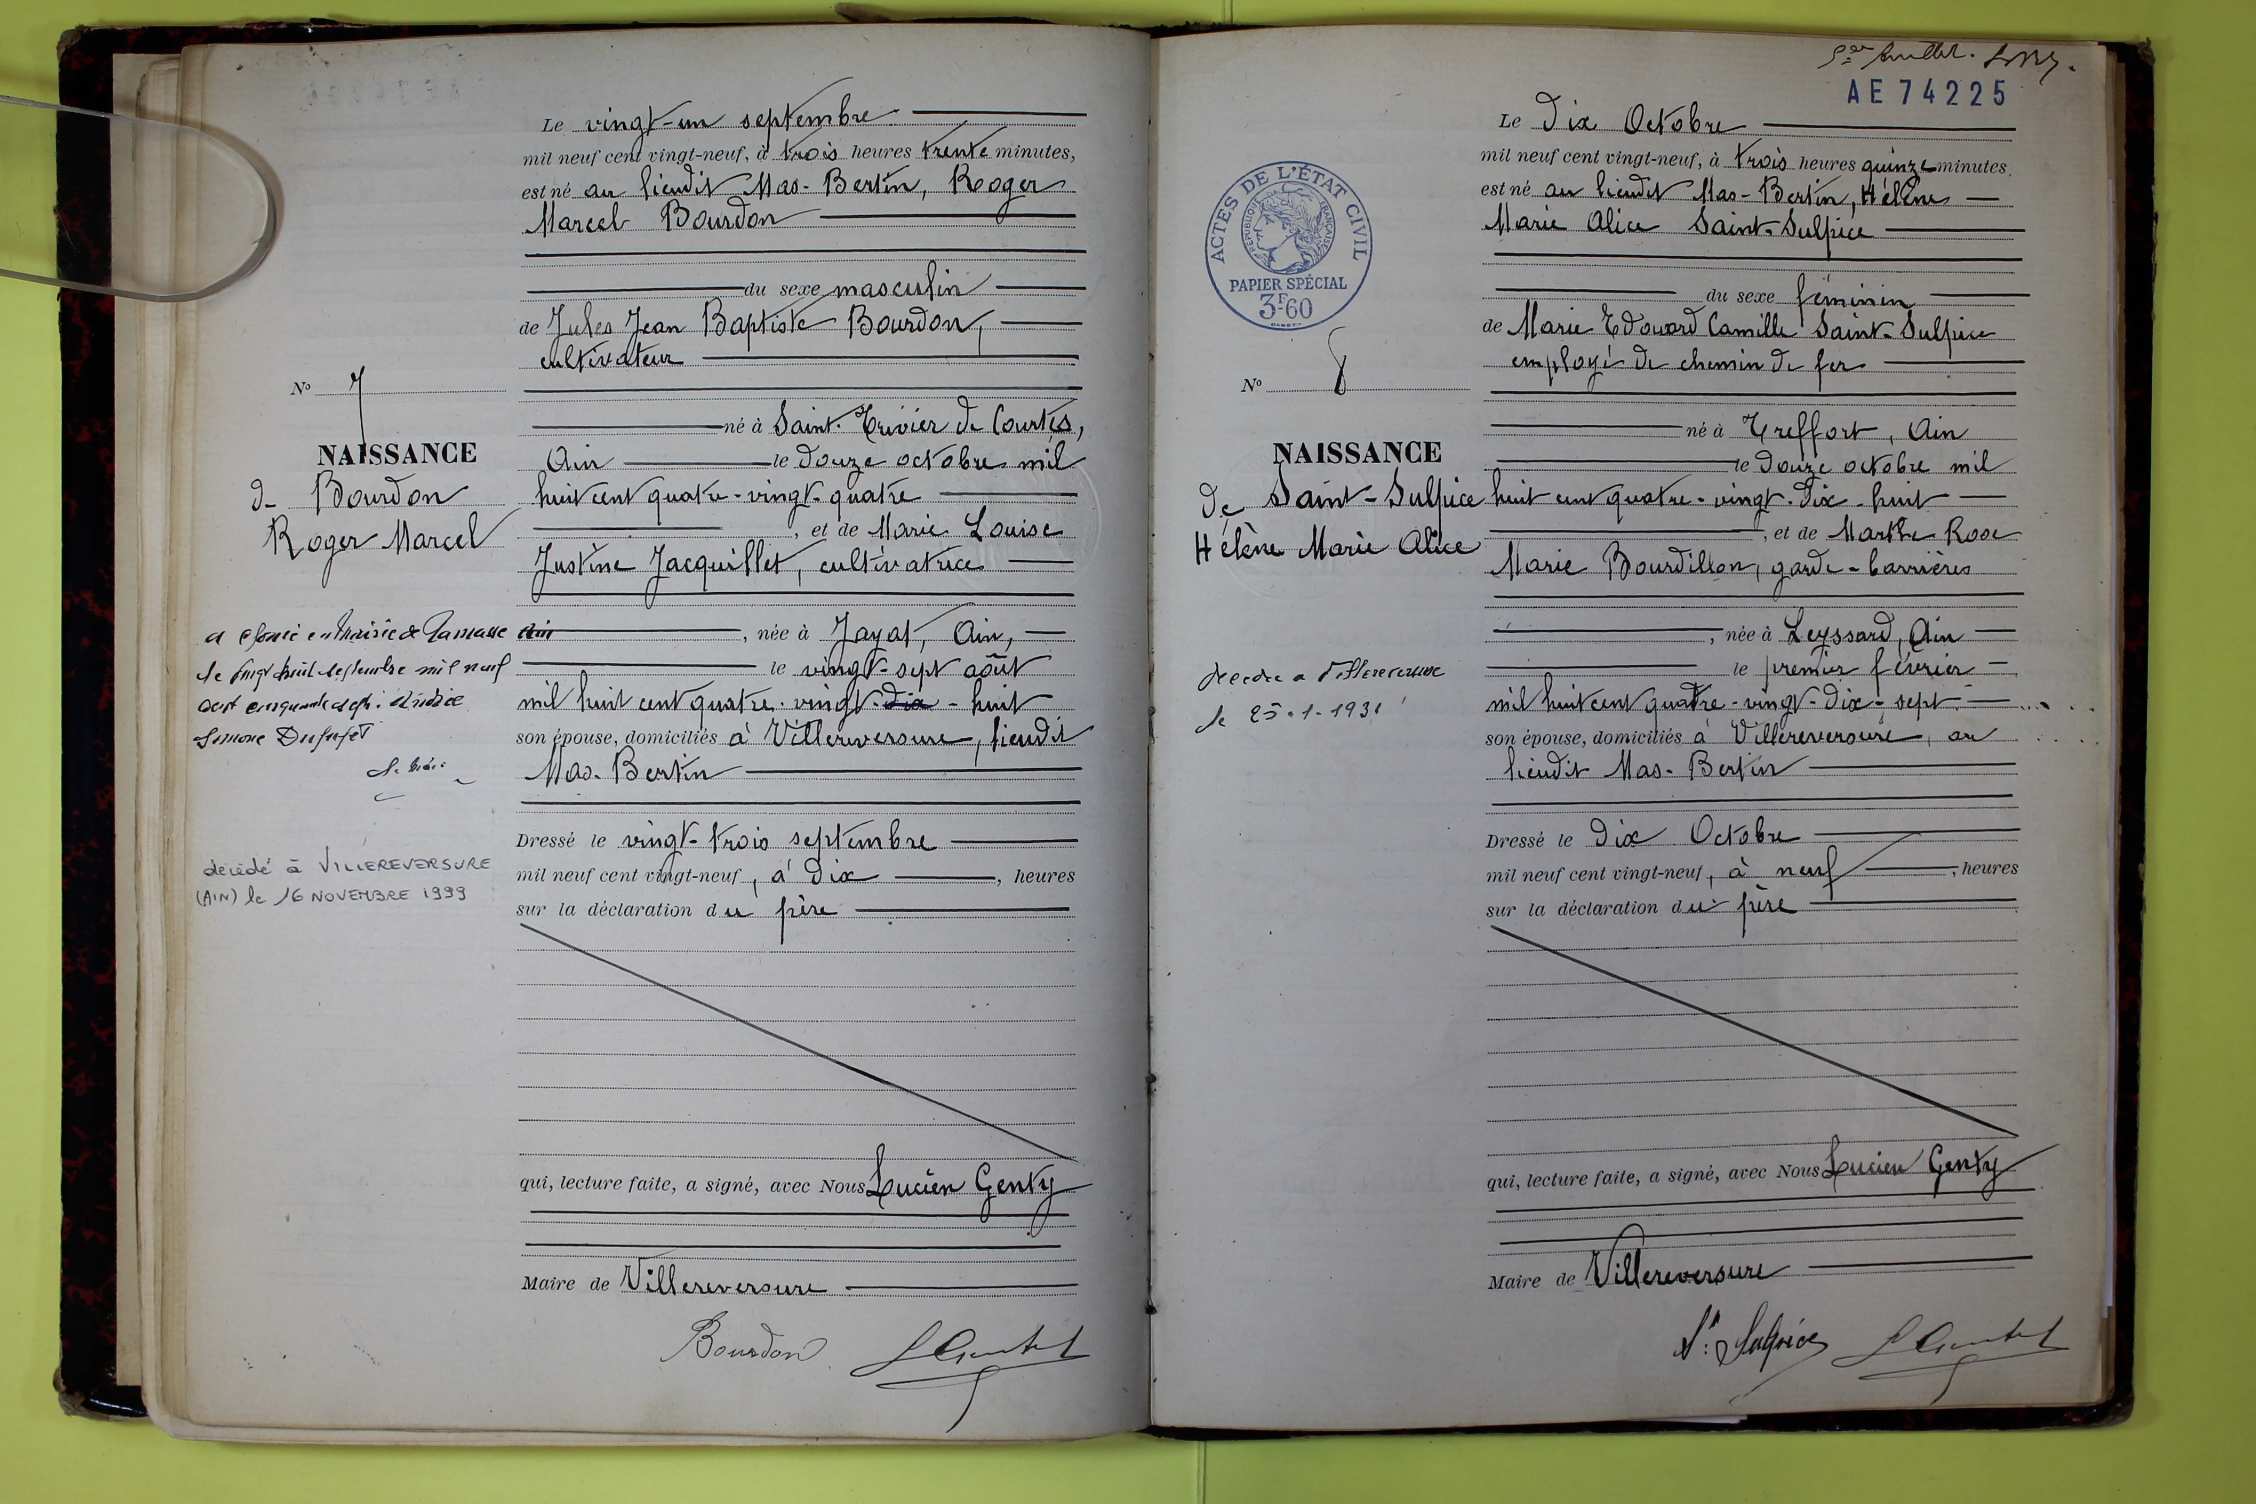 Le vingt-un septembre
mil neuf cent vingt-neuf, à trois heures trente minutes,
est né au lieudit Mas-Bertin, Roger
Marcel Bourdon
du sexe masculin
de Jules Jean Baptiste Bourdon,
cultivateur
né à Saint-Trivier de Courtes,
Ain le douze octobre mil
huit cent quatre-vingt-quatre
, et de Marie Louise
Justine Jacquillet, cultivatrice
Ain, née à Jayat, Ain,
le vingt-sept août
mil huit cent quatre-vingt-dix-huit
son épouse, domiciliés à Villereversure, lieudit
Mas-Bertin
Dressé le vingt-trois septembre
mil neuf cent vingt-neuf, à dix, heures
sur la déclaration du père
qui, lecture faite, a signé, avec Nous Lucien Genty
Maire de Villereversure
Bourdon
No 7
NAISSANCE
de Bourdon
Roger Marcel
a épousé en Mairie de Ramasse
le vingt huit septembre mil neuf
cent cinquante sept
Simone Dufufet
décédé à VILLEREVERSURE
(AIN) le 16 NOVEMBRE 1999
AE 74225
Le Dix Octobre
mil neuf cent vingt-neuf, à trois heures quinze minutes
est né au lieudit Mas-Bertin, Hélène
Marie Alice Saint-Sulpice
du sexe féminin
de Marie Edouard Camille Saint-Sulpice
employé de chemin de fer
né à Treffort, Ain
le douze octobre mil
huit cent quatre-vingt-dix-huit
, et de Marthe Rose
Marie Bourdillon, garde-barrières
, née à Leyssard, Ain
le premier février
mil huit cent quatre-vingt-dix-sept
son épouse, domiciliés à Villereversure, au
lieudit Mas-Bertin
Dressé le Dix Octobre
mil neuf cent vingt-neuf, à neuf, heures
sur la déclaration du père
qui, lecture faite, a signé, avec Nous Lucien Genty
Maire de Villereversure
St Sulpice
ACTES DE L'ÉTAT CIVIL
RÉPUBLIQUE FRANÇAISE
PAPIER SPÉCIAL
3F60
No 8
NAISSANCE
de Saint-Sulpice
Hélène Marie Alice
décédée a Villereversure
le 25-1-1931